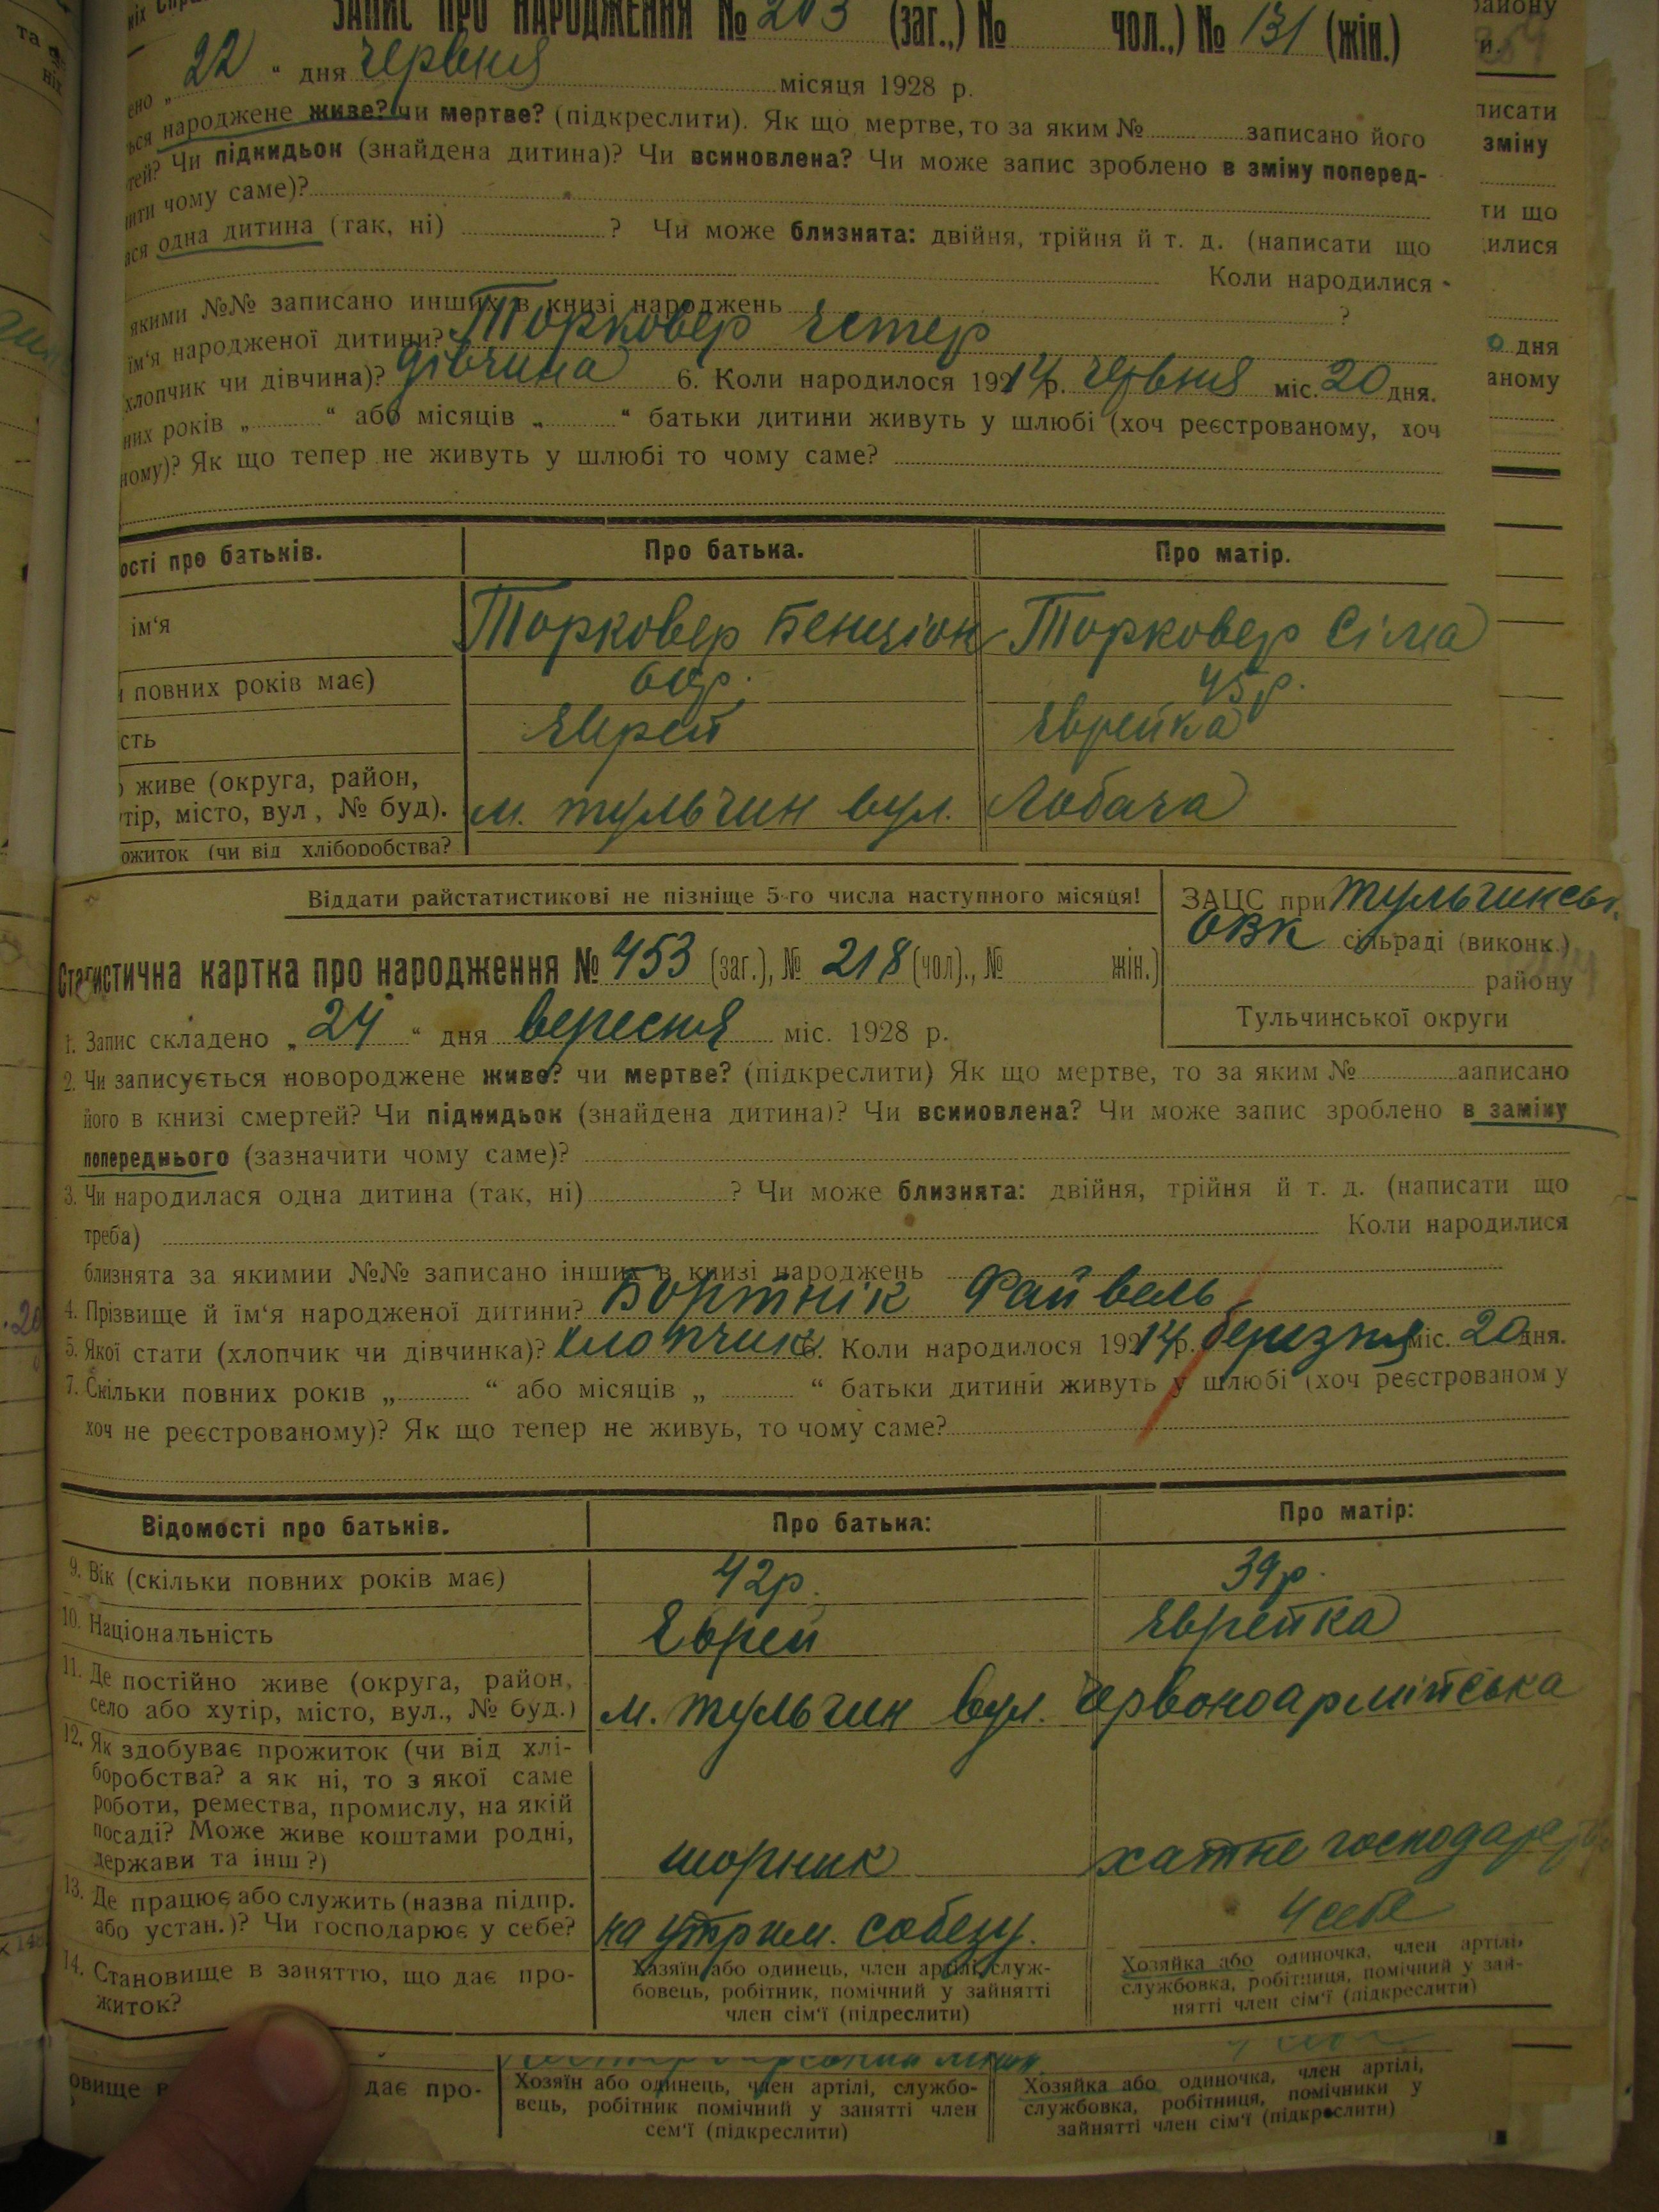 ЗАПИС ПРО НАРОДЖЕННЯ № 203 (заг.,) № чол.,) № 131 (жін.)
ено „ 22 “ дня червня місяця 1928 р.
ься народжене живе? чи мертве? (підкреслити). Як що мертве, то за яким № записано його
тей? Чи підкидьок (знайдена дитина)? Чи всиновлена? Чи може запис зроблено в зміну поперед-
ити чому саме)?
ася одна дитина (так, ні) ? Чи може близнята: двійня, трійня й т. д. (написати що
Коли народилися -
якими №№ записано инших в книзі народжень ?
ім‘я народженої дитини? Торковер Естер
хлопчик чи дівчина)? дівчина 6. Коли народилося 1924 р. червня міс. 20 дня.
них років „ “ або місяців „ “ батьки дитини живуть у шлюбі (хоч реєстрованому, хоч
ному)? Як що тепер не живуть у шлюбі то чому саме?
ості про батьків. Про батька. Про матір.
ім‘я Торковер Бенціон Торковер Сіма
повних років має) 60р. 45р.
сть Еврей Еврейка
живе (округа, район,
тір, місто, вул, № буд). м. Тульчин вул. Лобача
ожиток (чи від хліборобства?
Віддати райстатистикові не пізніще 5-го числа наступного місяця!
ЗАЦС при Тульчинськ.
ОВК сільраді (виконк.)
району
Тульчинської округи
Статистична картка про народження № 453 (заг.), № 218 (чол)., № жін.)
1. Запис складено „ 24 “ дня вересня міс. 1928 р.
2. Чи записується новороджене живе? чи мертве? (підкреслити) Як що мертве, то за яким № записано
його в книзі смертей? Чи підкидьок (знайдена дитина)? Чи всиновлена? Чи може запис зроблено в заміну
попереднього (зазначити чому саме)?
3. Чи народилася одна дитина (так, ні) ? Чи може близнята: двійня, трійня й т. д. (написати що
треба) Коли народилися
близнята за якимии №№ записано інших в книзі народжень
4. Прізвище й ім‘я народженої дитини? Бортнік Файвель
5. Якої стати (хлопчик чи дівчинка)? хлопчик 6. Коли народилося 1924р. березня міс. 20 дня.
7. Скільки повних років „ “ або місяців „ “ батьки дитини живуть у шлюбі (хоч реєстрованому
хоч не реєстрованому)? Як що тепер не живуь, то чому саме?
Відомості про батьків. Про батька: Про матір:
9. Вік (скільки повних років має) 42р. 39р.
10. Національність Еврей Еврейка
11. Де постійно живе (округа, район,
село або хутір, місто, вул., № буд.) м. Тульчин вул. Червоноармійська
12. Як здобуває прожиток (чи від хлі-
боробства? а як ні, то з якої саме
роботи, ремества, промислу, на якій
посаді? Може живе коштами родні,
держави та інш?) шорник хатне господарство
13. Де працює або служить (назва підпр.
або устан.)? Чи господарює у себе? на утрим. собезу. У себе
14. Становище в заняттю, що дає про-
житок?
Хазяїн або одинець, член артілі, служ-
бовець, робітник, помічний у зайнятті
член сім‘ї (підреслити)
Хозяйка або одиночка, член артілі,
службовка, робітниця, помічний у зай-
нятті член сім‘ї (підкреслити)
овище в дає про-
Хозяїн або одинець, член артілі, службо-
вець, робітник помічний у занятті член
сем‘ї (підкреслити)
Хозяйка або одиночка, член артілі,
службовка, робітниця, помічники у
зайнятті член сім‘ї (підкреслити)